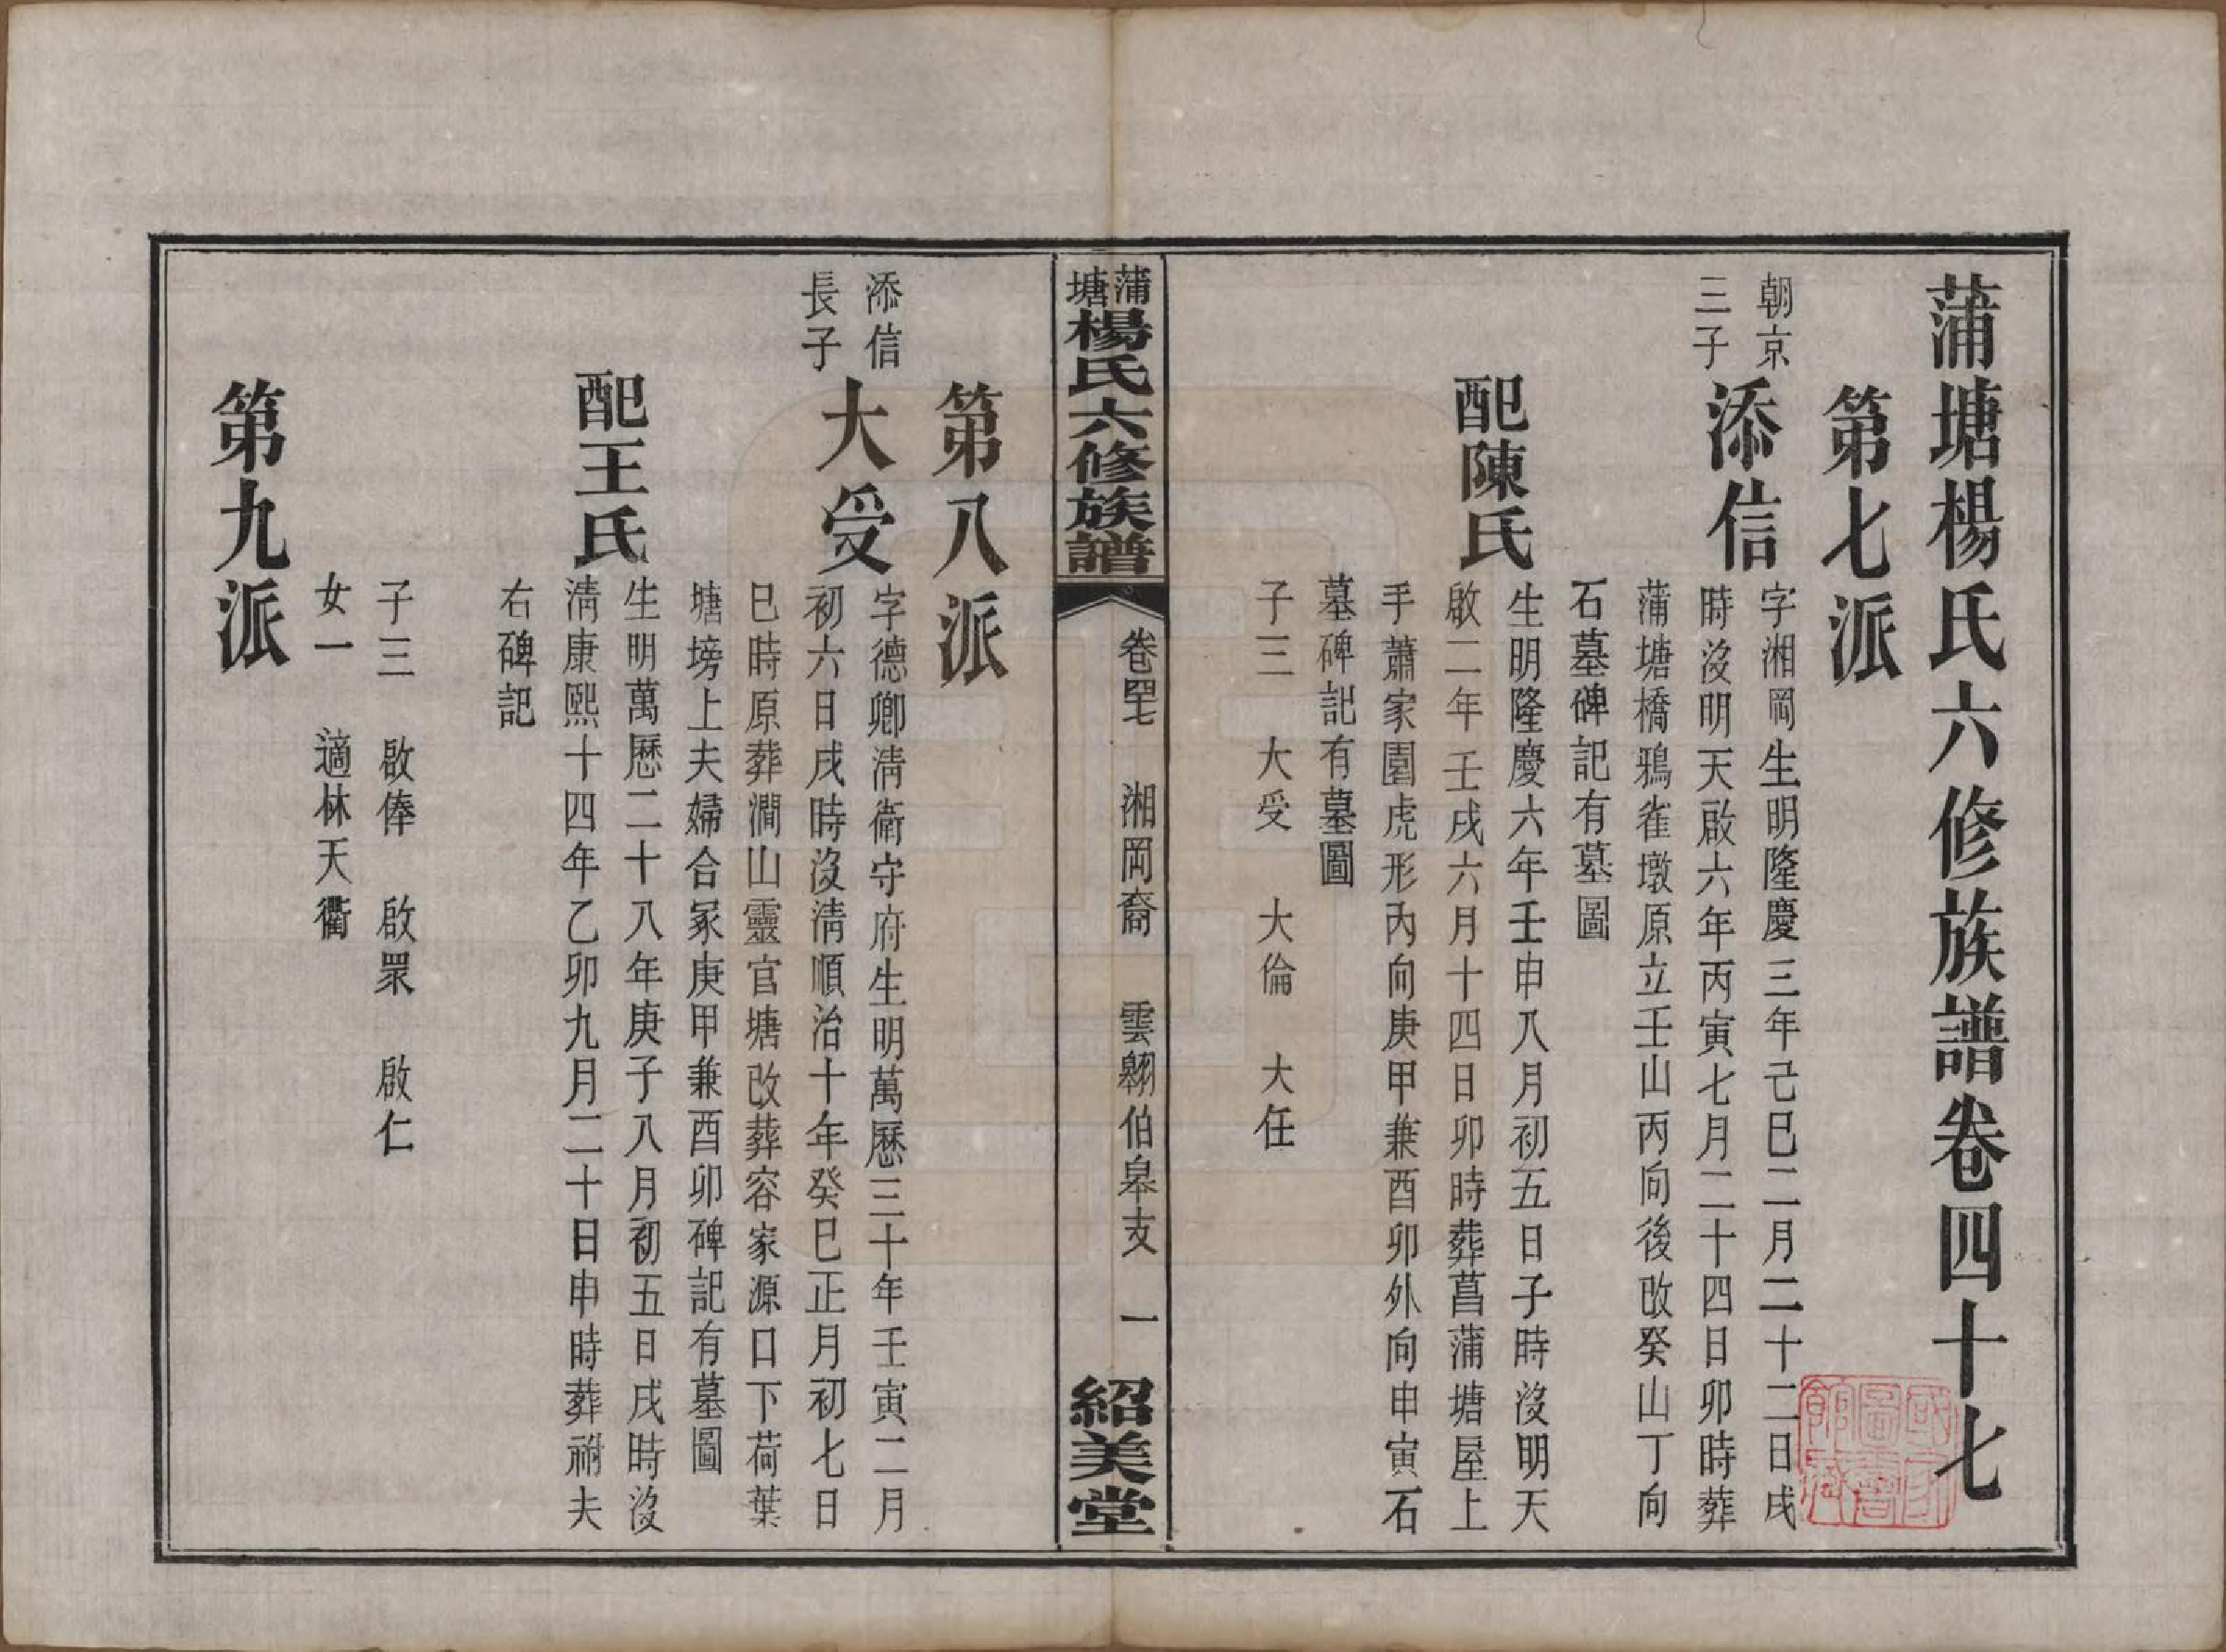 蒲塘楊氏六修族譜卷四十七
第七派
朝京
三子
添信
字湘岡生明隆慶三年己巳二月二十二日戌
時沒明天啟六年丙寅七月二十四日卯時葬
蒲塘橋鴉雀墩原立壬山丙向後改癸山丁向
石墓碑記有墓圖
配陳氏
生明隆慶六年壬申八月初五日子時沒明天
啟二年壬戌六月十四日卯時葬菖蒲塘屋上
手蕭家園虎形內向庚甲兼酉卯外向申寅石
墓碑記有墓圖
子三 大受 大倫 大任
蒲塘楊氏六修族譜
卷四七 湘岡裔 雲翱伯皋支 一
紹美堂
第八派
添信
長子
大受
字德卿清衛守府生明萬曆三十年壬寅二月
初六日戌時沒清順治十年癸巳正月初七日
巳時原葬澗山靈官塘改葬容家源口下荷葉
塘塝上夫婦合冢庚甲兼酉卯碑記有墓圖
配王氏
生明萬曆二十八年庚子八月初五日戌時沒
清康熙十四年乙卯九月二十日申時葬祔夫
右碑記
子三 啟俸 啟眾 啟仁
女一 適林天衢
第九派
國家
圖書
館藏